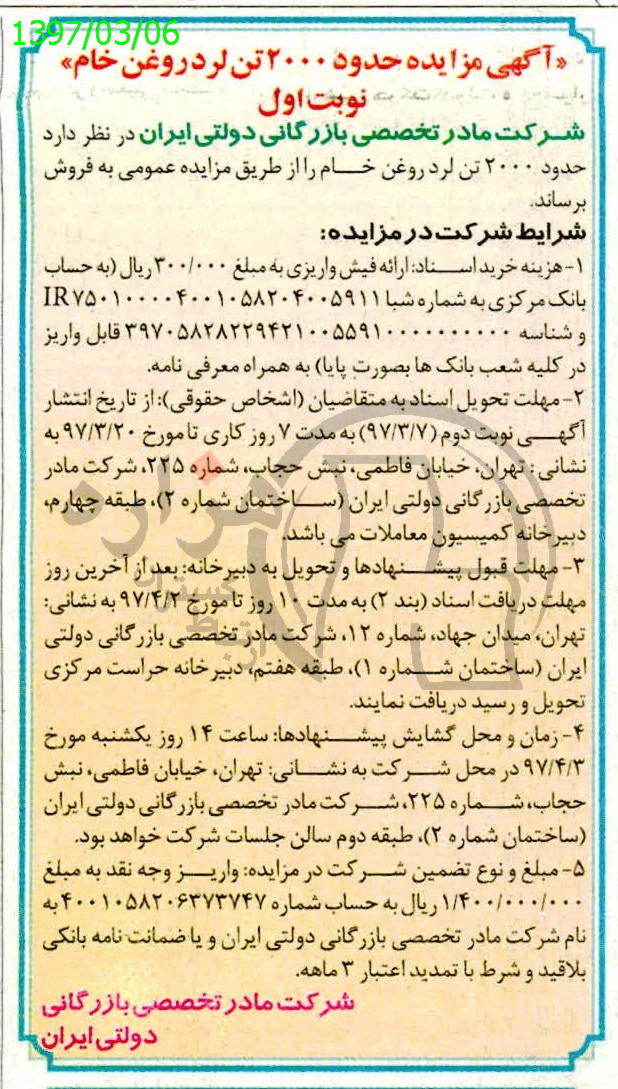 1397/03/06
«آگهی مزایده حدود ۲۰۰۰ تن لرد روغن خام»
نوبت اول
شرکت مادر تخصصی بازرگانی دولتی ایران در نظر دارد
حدود ۲۰۰۰ تن لرد روغن خام را از طریق مزایده عمومی به فروش
برساند.
شرایط شرکت در مزایده:
۱- هزینه خرید اسناد: ارائه فیش واریزی به مبلغ ۳۰۰/۰۰۰ ریال (به حساب
بانک مرکزی به شماره شبا IR۷۵۰۱۰۰۰۰۴۰۰۱۰۵۸۲۰۴۰۰۵۹۱۱
و شناسه ۳۹۷۰۵۸۲۸۲۲۹۴۲۱۰۰۵۵۹۱۰۰۰۰۰۰۰۰۰۰ قابل واریز
در کلیه شعب بانک ها بصورت پایا) به همراه معرفی نامه.
۲- مهلت تحویل اسناد به متقاضیان (اشخاص حقوقی): از تاریخ انتشار
آگهی نوبت دوم (۹۷/۳/۷) به مدت ۷ روز کاری تا مورخ ۹۷/۳/۲۰ به
نشانی: تهران، خیابان فاطمی، نبش حجاب، شماره ۲۲۵، شرکت مادر
تخصصی بازرگانی دولتی ایران (ساختمان شماره ۲)، طبقه چهارم،
دبیرخانه کمیسیون معاملات می باشد.
۳- مهلت قبول پیشنهادها و تحویل به دبیرخانه: بعد از آخرین روز
مهلت دریافت اسناد (بند ۲) به مدت ۱۰ روز تا مورخ ۹۷/۴/۲ به نشانی:
تهران، میدان جهاد، شماره ۱۲، شرکت مادر تخصصی بازرگانی دولتی
ایران (ساختمان شماره ۱)، طبقه هفتم، دبیرخانه حراست مرکزی
تحویل و رسید دریافت نمایند.
۴- زمان و محل گشایش پیشنهادها: ساعت ۱۴ روز یکشنبه مورخ
۹۷/۴/۳ در محل شرکت به نشانی: تهران، خیابان فاطمی، نبش
حجاب، شماره ۲۲۵، شرکت مادر تخصصی بازرگانی دولتی ایران
(ساختمان شماره ۲)، طبقه دوم سالن جلسات شرکت خواهد بود.
۵- مبلغ و نوع تضمین شرکت در مزایده: واریز وجه نقد به مبلغ
۱/۴۰۰/۰۰۰/۰۰۰ ریال به حساب شماره ۴۰۰۱۰۵۸۲۰۶۳۷۳۷۴۷ به
نام شرکت مادر تخصصی بازرگانی دولتی ایران و یا ضمانت نامه بانکی
بلاقید و شرط با تمدید اعتبار ۳ ماهه.
شرکت مادر تخصصی بازرگانی
دولتی ایران
هزاره